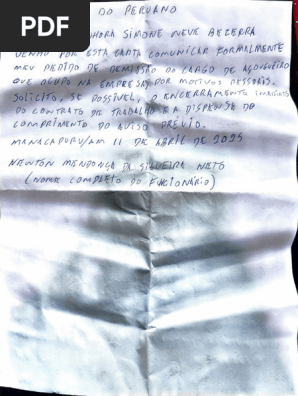 PDF
DO PERUANO
HORA SIMONE NEVE BEZERRA
VENHO POR ESTA CARTA COMUNICAR FORMALMENTE
MEU PEDIDO DE DEMISSÃO DO CARGO DE AÇOUGUEIRO
QUE OCUPO NA EMPRESA, POR MOTIVOS PESSOAIS.
SOLICITO, SE POSSÍVEL, O ENCERRAMENTO IMEDIATO
DO CONTRATO DE TRABALHO E A DISPENSA DO
COMPRIMENTO DO AVISO PRÉVIO.
MANACAPURU/AM 11 DE ABRIL DE 2025
NEWTON MENDONÇA DA SILVEIRA NETO
(NOME COMPLETO DO FUNCIONÁRIO)